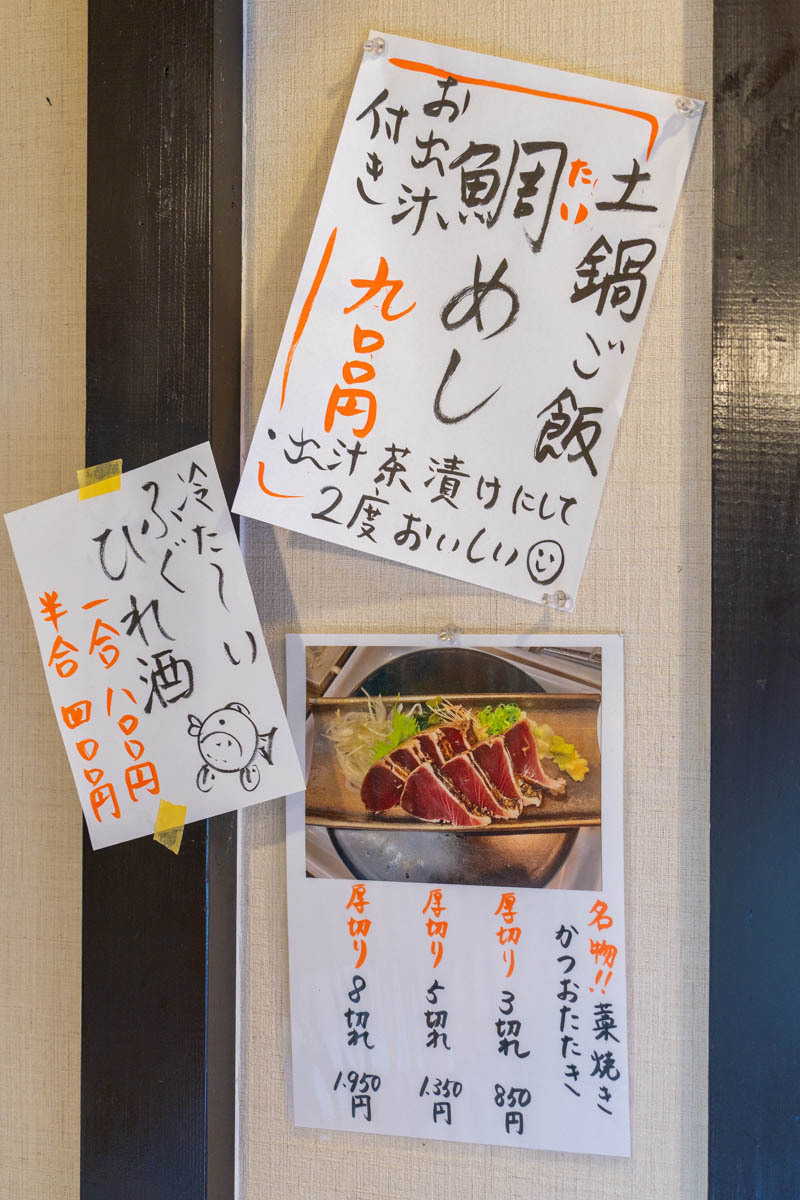 土鍋ご飯
たい
鯛めし
お出汁
付き
九〇〇円
・出汁茶漬けにして
2度おいしい
冷た〜い
ふぐ
ひれ酒
一合 八〇〇円
半合 四〇〇円
名物!! 藁焼き
かつおたたき
厚切り 3切れ 850円
厚切り 5切れ 1.350円
厚切り 8切れ 1.950円